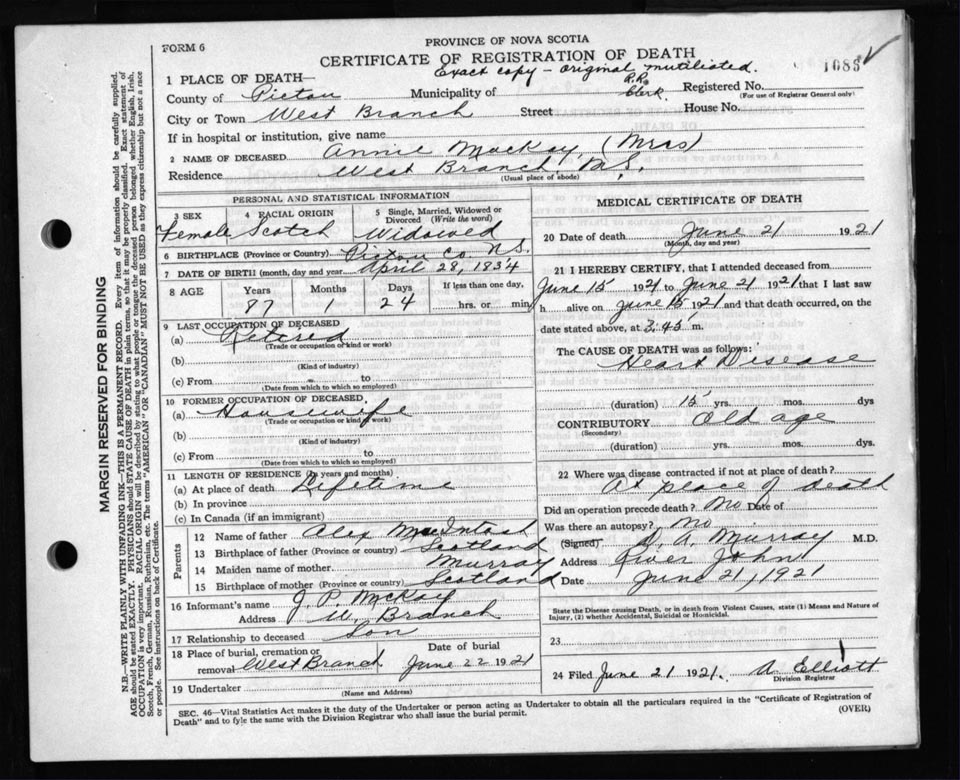 FORM 6
PROVINCE OF NOVA SCOTIA
CERTIFICATE OF REGISTRATION OF DEATH
Exact copy - original mutiliated.
1085
1 PLACE OF DEATH—
County of Pictou Municipality of Clerk. Registered No.
(For use of Registrar General only)
City or Town West Branch Street House No.
If in hospital or institution, give name
2 NAME OF DECEASED Annie MacKay (Mrs)
Residence West Branch N.S.
(Usual place of abode)
PERSONAL AND STATISTICAL INFORMATION
3 SEX Female
4 RACIAL ORIGIN Scotch
5 Single, Married, Widowed or Divorced (Write the word) Widowed
6 BIRTHPLACE (Province or Country) Pictou Co N.S.
7 DATE OF BIRTH (month, day and year) April 28, 1834
8 AGE Years 87 Months 1 Days 24 If less than one day, hrs. or min
9 LAST OCCUPATION OF DECEASED
(a) Retired
(Trade or occupation or kind or work)
(b)
(Kind of industry)
(c) From to
(Date from which to which so employed)
10 FORMER OCCUPATION OF DECEASED
(a) Housewife
(Trade or occupation or kind or work)
(b)
(Kind of industry)
(c) From to
(Date from which to which so employed)
11 LENGTH OF RESIDENCE (In years and months)
(a) At place of death Lifetime
(b) In province
(c) In Canada (if an immigrant)
Parents
12 Name of father Alex MacIntosh
13 Birthplace of father (Province or country) Scotland
14 Maiden name of mother Murray
15 Birthplace of mother (Province or country) Scotland
16 Informant's name J. P. McKay
Address W. Branch
17 Relationship to deceased Son
18 Place of burial, cremation or removal West Branch
Date of burial June 22 1921
19 Undertaker
(Name and Address)
MEDICAL CERTIFICATE OF DEATH
20 Date of death June 21 1921
(Month, day and year)
21 I HEREBY CERTIFY, that I attended deceased from
June 15 1921 to June 21 1921 that I last saw
h alive on June 15 1921 and that death occurred, on the
date stated above, at 3.45 m.
The CAUSE OF DEATH was as follows:
Heart Disease
(duration) 15 yrs. mos. dys
CONTRIBUTORY Old age
(Secondary)
(duration) yrs. mos. dys.
22 Where was disease contracted if not at place of death?
At place of death
Did an operation precede death? No Date of
Was there an autopsy? No
(Signed) D. A. Murray M.D.
Address River John
Date June 21, 1921
State the Disease causing Death, or in death from Violent Causes, state (1) Means and Nature of
Injury, (2) whether Accidental, Suicidal or Homicidal.
23
24 Filed June 21 1921. A Elliott
Division Registrar
SEC. 46—Vital Statistics Act makes it the duty of the Undertaker or person acting as Undertaker to obtain all the particulars required in the "Certificate of Registration of
Death" and to fyle the same with the Division Registrar who shall issue the burial permit.
(OVER)
MARGIN RESERVED FOR BINDING
N.B.—WRITE PLAINLY WITH UNFADING INK—THIS IS A PERMANENT RECORD. Every item of information should be carefully supplied.
AGE should be stated EXACTLY. PHYSICIANS should STATE CAUSE OF DEATH in plain terms, so that it may be properly classified. Exact statement of
OCCUPATION is very important. RACIAL ORIGIN will be described by stating to what people or tongue the deceased person belonged whether English, Irish,
Scotch, French, German, Russian, Ruthenian, etc. The terms "AMERICAN" OR "CANADIAN" MUST NOT BE USED as they express citizenship but not a race
or people. See instructions on back of Certificate.